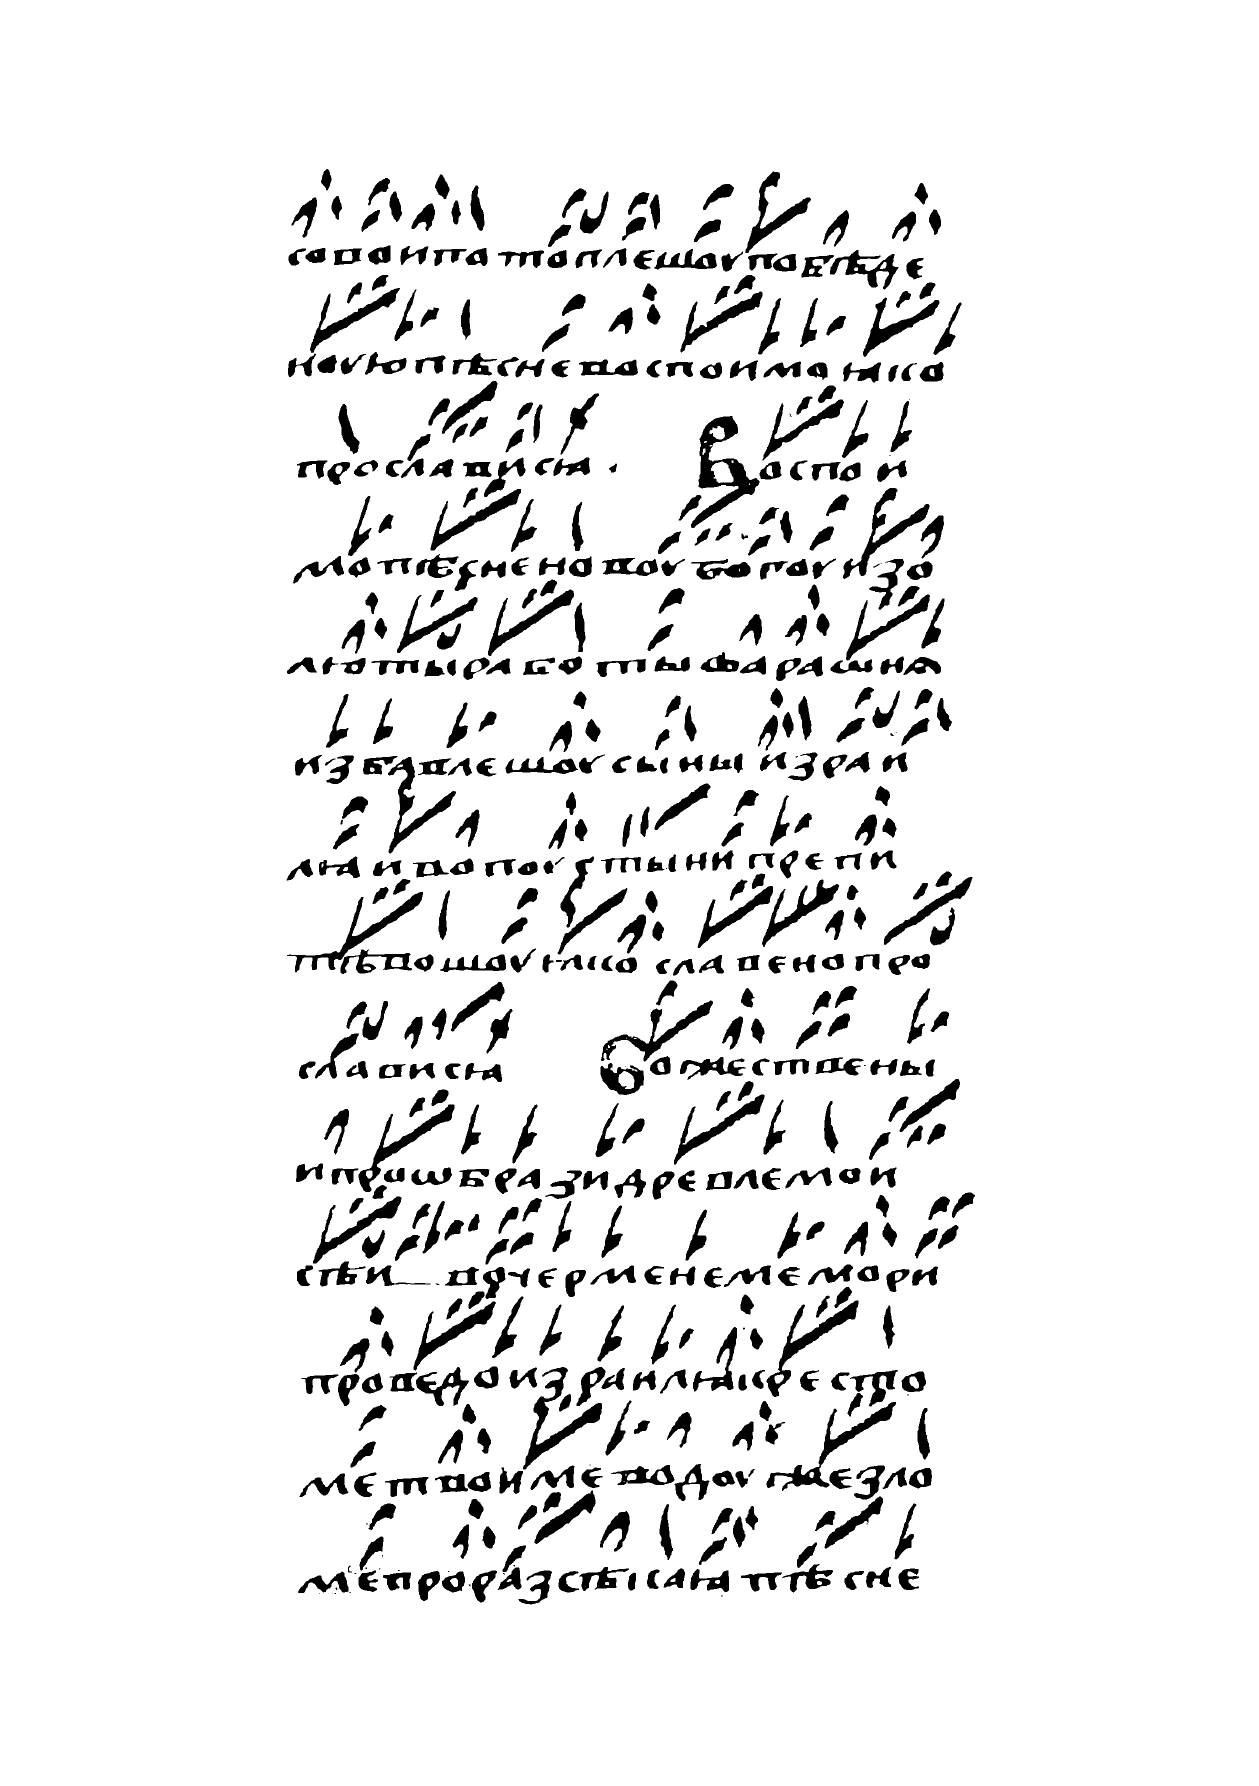 сововипа топлешоу побѣде
ноую пѣсне воспоимо ꙗко
прослависѧ · Воспои
мо пѣсне новоу богоу изо
лютыѧ работы фараѡнѧ
избавлешоу сыны израи
лѧ и во поустыни препи
тѣвошоу ꙗко славено про
слависѧ Божествены
и проѡбрази древле мои
сѣи во чермнемо мори
проведо израилѧ кресто
ме твоиме водоу жезло
ме проразсѣкаѧ пѣсне